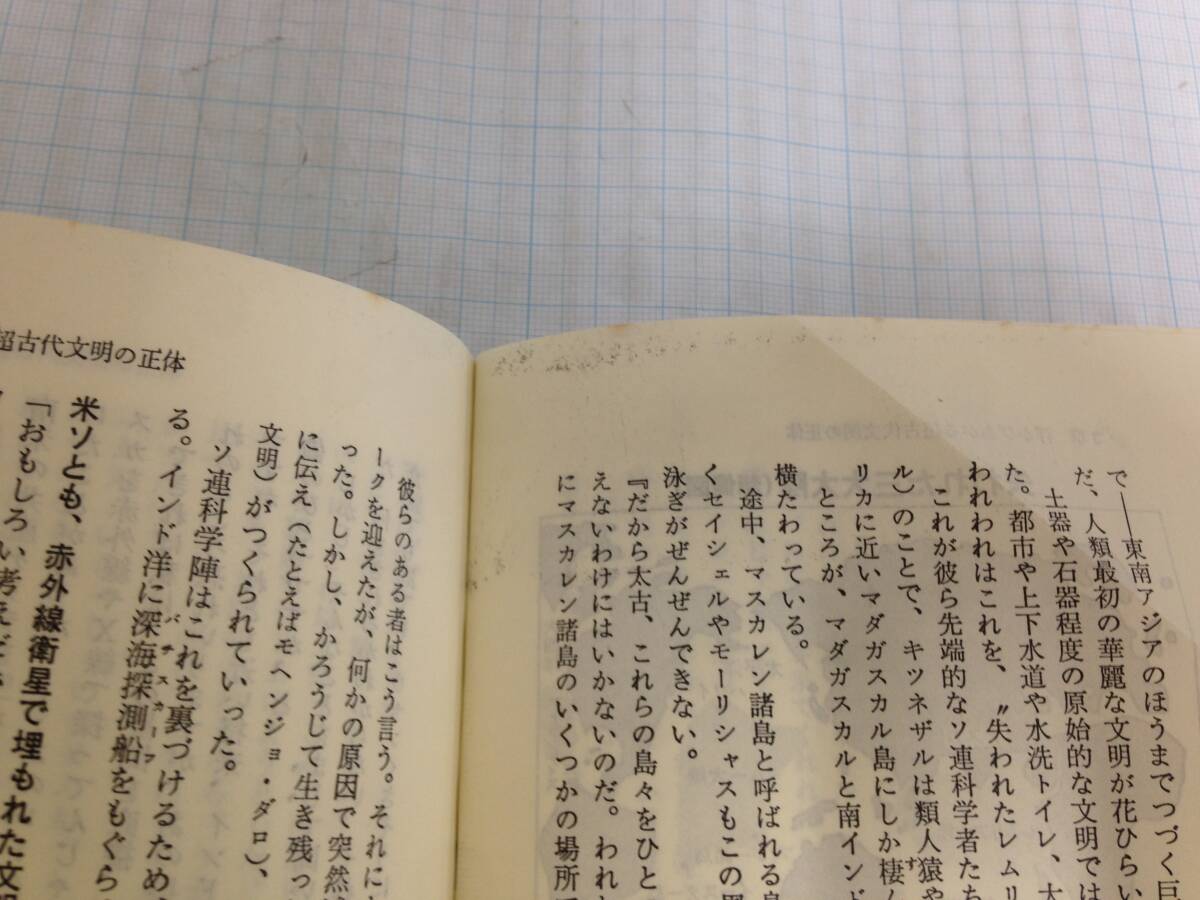 で――東南アジアのほうまでつづく巨
だ、人類最初の華麗な文明が花ひらい
土器や石器程度の原始的な文明では
た。都市や上下水道や水洗トイレ、大
われわれはこれを、〝失われたレムリ
これが彼ら先端的なソ連科学者たち
ル）のことで、キツネザルは類人猿や
リカに近いマダガスカル島にしか棲ん
ところが、マダガスカルと南インド
横たわっている。
途中、マスカレン諸島と呼ばれる島
くセイシェルやモーリシャスもこの
泳ぎがぜんぜんできない。
『だから太古、これらの島々をひと
えないわけにはいかないのだ。われ
にマスカレン諸島のいくつかの場所
超古代文明の正体
彼らのある者はこう言う。それに
ークを迎えたが、何かの原因で突然
った。しかし、かろうじて生き残っ
に伝え（たとえばモヘンジョ・ダロ）、
文明）がつくられていった。
ソ連科学陣はこれを裏づけるため
る。インド洋に深海探測船をもぐら
米ソとも、赤外線衛星で埋もれた文明
「おもしろい考えだ